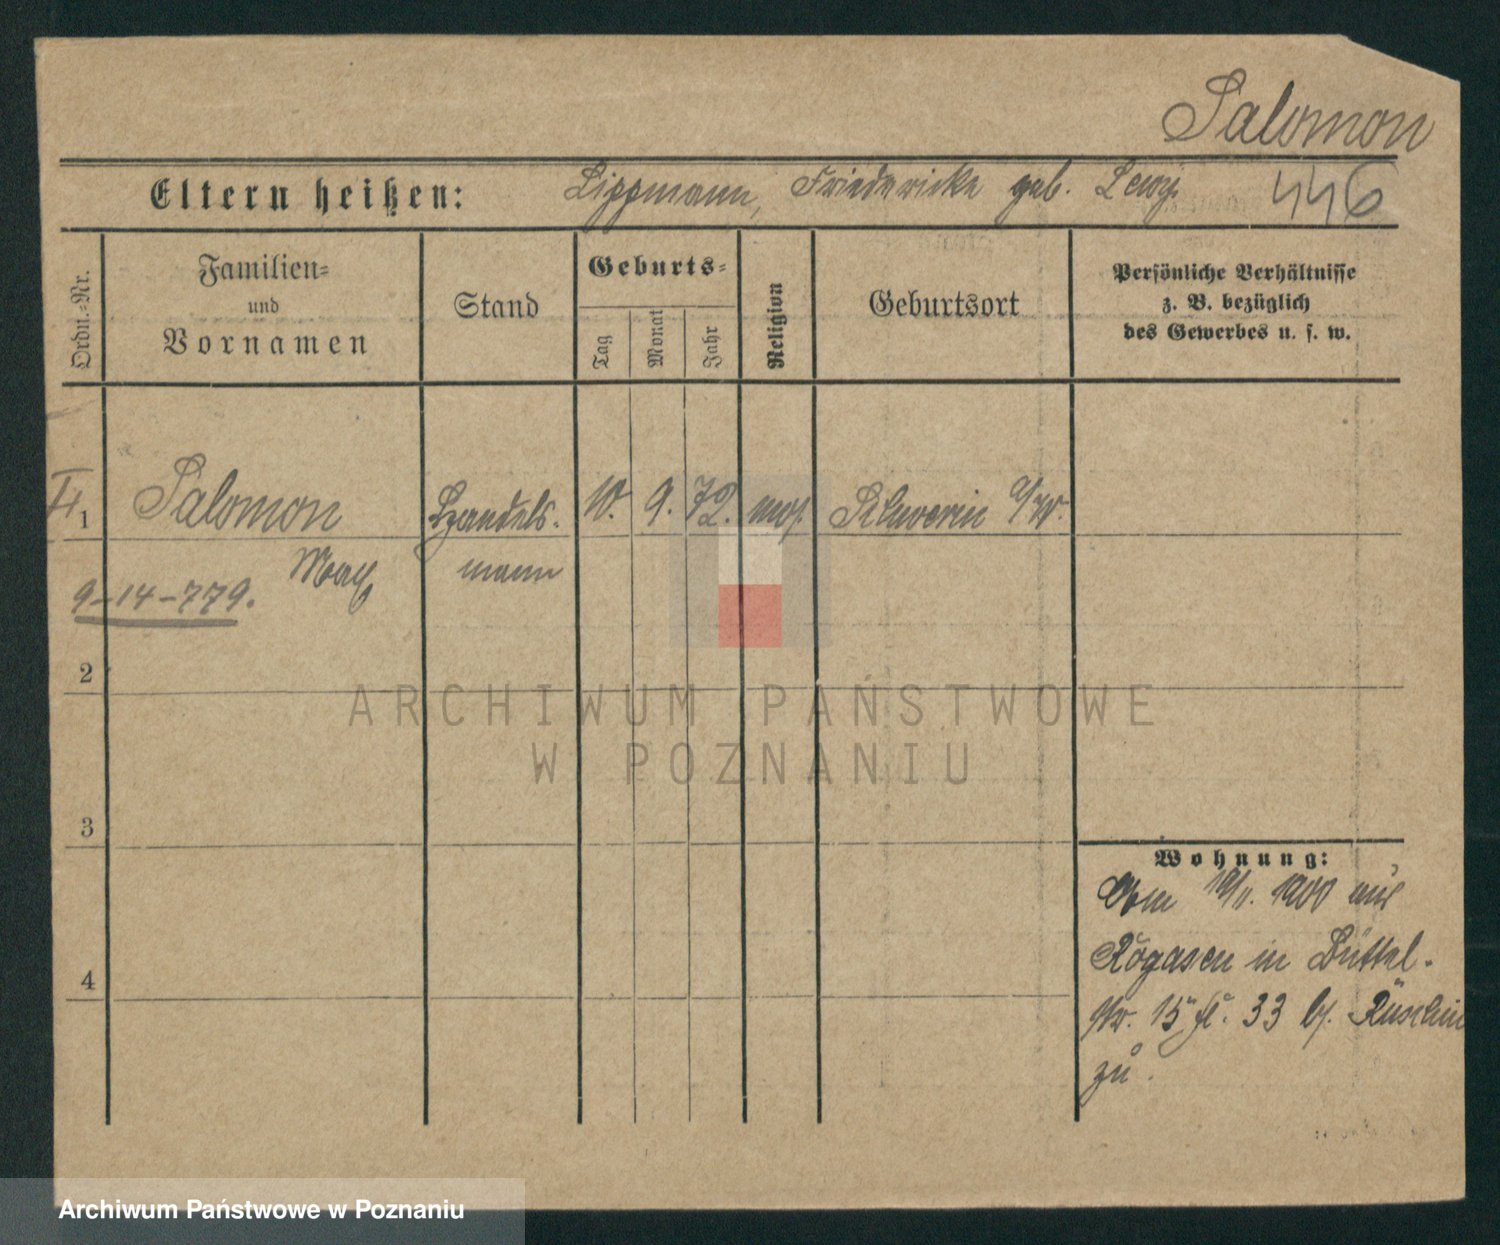 Salomon
446
Eltern heißen: Lippmann, Friedericke geb. Lewy.
Ordn.-Nr.
Familien- und Vornamen
Stand
Geburts-
Tag
Monat
Jahr
Religion
Geburtsort
Persönliche Verhältnisse
z. B. bezüglich
des Gewerbes u. s. w.
1 Salomon Handels- 10. 9. 72. mos. Schwerin a/W.
Max mann
9-14-779.
2
3
4
Wohnung:
Vom 19/11. 1900 aus
Rogasen in Büttel-
str. 15 fl. 33 bs.
zu.
ARCHIWUM PAŃSTWOWE
W POZNANIU
Archiwum Państwowe w Poznaniu